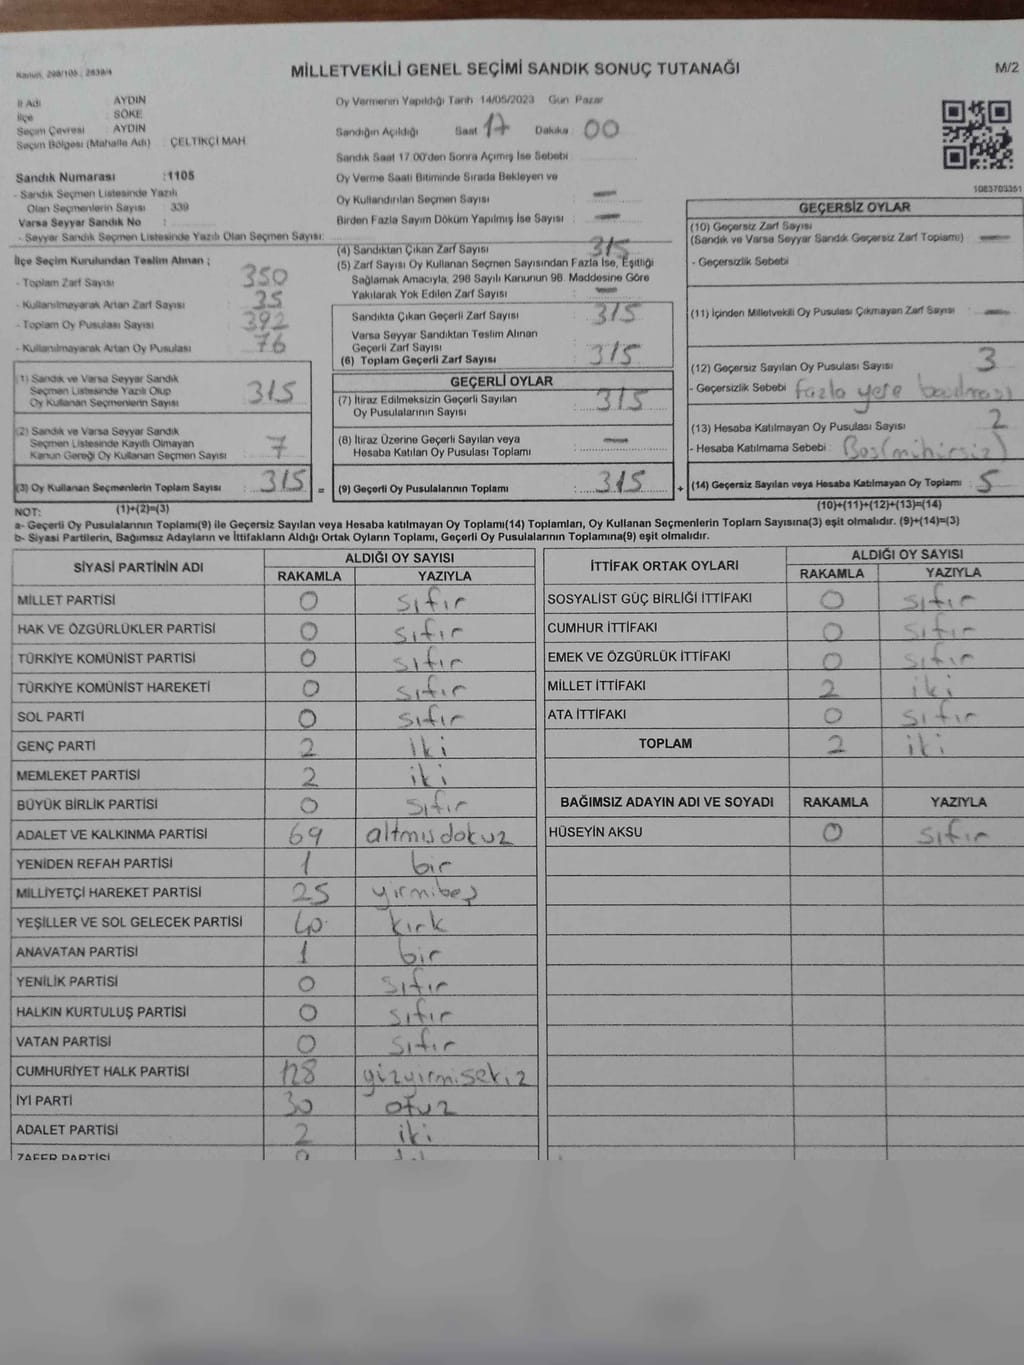 Kanun, 298/105, 2839/4
MİLLETVEKİLİ GENEL SEÇİMİ SANDIK SONUÇ TUTANAĞI
M/2
İl Adı AYDIN
İlçe SÖKE
Seçim Çevresi AYDIN
Seçim Bölgesi (Mahalle Adı) : ÇELTİKÇİ MAH.
Sandık Numarası :1105
- Sandık Seçmen Listesinde Yazılı
Olan Seçmenlerin Sayısı : 339
Varsa Seyyar Sandık No :
- Seyyar Sandık Seçmen Listesinde Yazılı Olan Seçmen Sayısı:
Oy Vermenin Yapıldığı Tarih 14/05/2023 Gün Pazar
Sandığın Açıldığı Saat 17 Dakika : 00
Sandık Saat 17.00'den Sonra Açılmış İse Sebebi
Oy Verme Saati Bitiminde Sırada Bekleyen ve
Oy Kullandırılan Seçmen Sayısı : —
Birden Fazla Sayım Döküm Yapılmış İse Sayısı : —
1083703351
İlçe Seçim Kurulundan Teslim Alınan ;
- Toplam Zarf Sayısı : 350
- Kullanılmayarak Artan Zarf Sayısı : 35
- Toplam Oy Pusulası Sayısı : 392
- Kullanılmayarak Artan Oy Pusulası : 76
(1) Sandık ve Varsa Seyyar Sandık
Seçmen Listesinde Yazılı Olup
Oy Kullanan Seçmenlerin Sayısı : 315
(2) Sandık ve Varsa Seyyar Sandık
Seçmen Listesinde Kayıtlı Olmayan
Kanun Gereği Oy Kullanan Seçmen Sayısı : 7
(3) Oy Kullanan Seçmenlerin Toplam Sayısı : 315
(4) Sandıktan Çıkan Zarf Sayısı : 315
(5) Zarf Sayısı Oy Kullanan Seçmen Sayısından Fazla İse, Eşitliği
Sağlamak Amacıyla, 298 Sayılı Kanunun 98. Maddesine Göre
Yakılarak Yok Edilen Zarf Sayısı : —
Sandıkta Çıkan Geçerli Zarf Sayısı : 315
Varsa Seyyar Sandıktan Teslim Alınan
Geçerli Zarf Sayısı
(6) Toplam Geçerli Zarf Sayısı : 315
GEÇERLİ OYLAR
(7) İtiraz Edilmeksizin Geçerli Sayılan
Oy Pusulalarının Sayısı : 315
(8) İtiraz Üzerine Geçerli Sayılan veya
Hesaba Katılan Oy Pusulası Toplamı : —
= (9) Geçerli Oy Pusulalarının Toplamı : 315 +
GEÇERSİZ OYLAR
(10) Geçersiz Zarf Sayısı
(Sandık ve Varsa Seyyar Sandık Geçersiz Zarf Toplamı) : —
- Geçersizlik Sebebi
(11) İçinden Milletvekili Oy Pusulası Çıkmayan Zarf Sayısı : —
(12) Geçersiz Sayılan Oy Pusulası Sayısı : 3
- Geçersizlik Sebebi : fazla yere basılması
(13) Hesaba Katılmayan Oy Pusulası Sayısı : 2
- Hesaba Katılmama Sebebi : Boş(mühürsüz)
(14) Geçersiz Sayılan veya Hesaba Katılmayan Oy Toplamı : 5
NOT: (1)+(2)=(3)
(10)+(11)+(12)+(13)=(14)
a- Geçerli Oy Pusulalarının Toplamı(9) ile Geçersiz Sayılan veya Hesaba katılmayan Oy Toplamı(14) Toplamları, Oy Kullanan Seçmenlerin Toplam Sayısına(3) eşit olmalıdır. (9)+(14)=(3)
b- Siyasi Partilerin, Bağımsız Adayların ve İttifakların Aldığı Ortak Oyların Toplamı, Geçerli Oy Pusulalarının Toplamına(9) eşit olmalıdır.
SİYASİ PARTİNİN ADI ALDIĞI OY SAYISI
RAKAMLA YAZIYLA
MİLLET PARTİSİ 0 sıfır
HAK VE ÖZGÜRLÜKLER PARTİSİ 0 sıfır
TÜRKİYE KOMÜNİST PARTİSİ 0 sıfır
TÜRKİYE KOMÜNİST HAREKETİ 0 sıfır
SOL PARTİ 0 sıfır
GENÇ PARTİ 2 iki
MEMLEKET PARTİSİ 2 iki
BÜYÜK BİRLİK PARTİSİ 0 sıfır
ADALET VE KALKINMA PARTİSİ 69 altmışdokuz
YENİDEN REFAH PARTİSİ 1 bir
MİLLİYETÇİ HAREKET PARTİSİ 25 yirmibeş
YEŞİLLER VE SOL GELECEK PARTİSİ 40 kırk
ANAVATAN PARTİSİ 1 bir
YENİLİK PARTİSİ 0 sıfır
HALKIN KURTULUŞ PARTİSİ 0 sıfır
VATAN PARTİSİ 0 sıfır
CUMHURİYET HALK PARTİSİ 128 yüzyirmisekiz
İYİ PARTİ 30 otuz
ADALET PARTİSİ 2 iki
ZAFER PARTİSİ
İTTİFAK ORTAK OYLARI ALDIĞI OY SAYISI
RAKAMLA YAZIYLA
SOSYALİST GÜÇ BİRLİĞİ İTTİFAKI 0 sıfır
CUMHUR İTTİFAKI 0 sıfır
EMEK VE ÖZGÜRLÜK İTTİFAKI 0 sıfır
MİLLET İTTİFAKI 2 iki
ATA İTTİFAKI 0 sıfır
TOPLAM 2 iki
BAĞIMSIZ ADAYIN ADI VE SOYADI RAKAMLA YAZIYLA
HÜSEYİN AKSU 0 sıfır